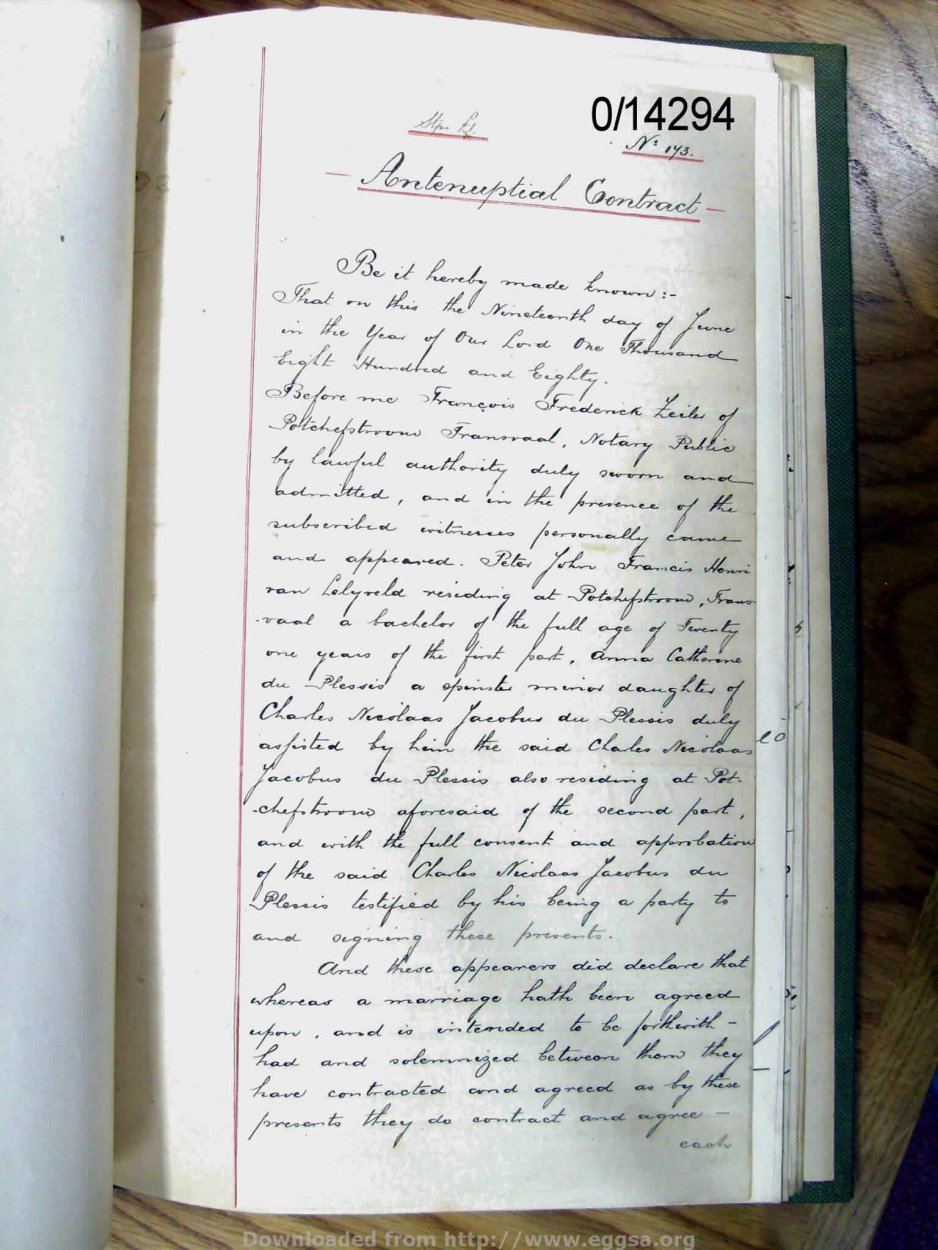 0/14294
Nº 173.
Antenuptial Contract
Be it hereby made known:-
That on this the Nineteenth day of June
in the Year of Our Lord One Thousand
Eight Hundred and Eighty.
Before me François Frederick Zeiler of
Potchefstroom Transvaal, Notary Public
by lawful authority duly sworn and
admitted, and in the presence of the
subscribed witnesses personally came
and appeared. Peter John Francis Henri
van Lelyveld residing at Potchefstroom, Trans-
-vaal a bachelor of the full age of Twenty
one years of the first part, Anna Catherine
du Plessis a spinster minor daughter of
Charles Nicolaas Jacobus du Plessis duly
assisted by him the said Charles Nicolaas
Jacobus du Plessis also residing at Pot-
-chefstroom aforesaid of the second part,
and with the full consent and approbation
of the said Charles Nicolaas Jacobus du
Plessis testified by his being a party to
and signing these presents.
And these appearers did declare that
whereas a marriage hath been agreed
upon, and is intended to be forthwith -
had and solemnized between them they
have contracted and agreed as by these
presents they do contract and agree -
each
Downloaded from http://www.eggsa.org